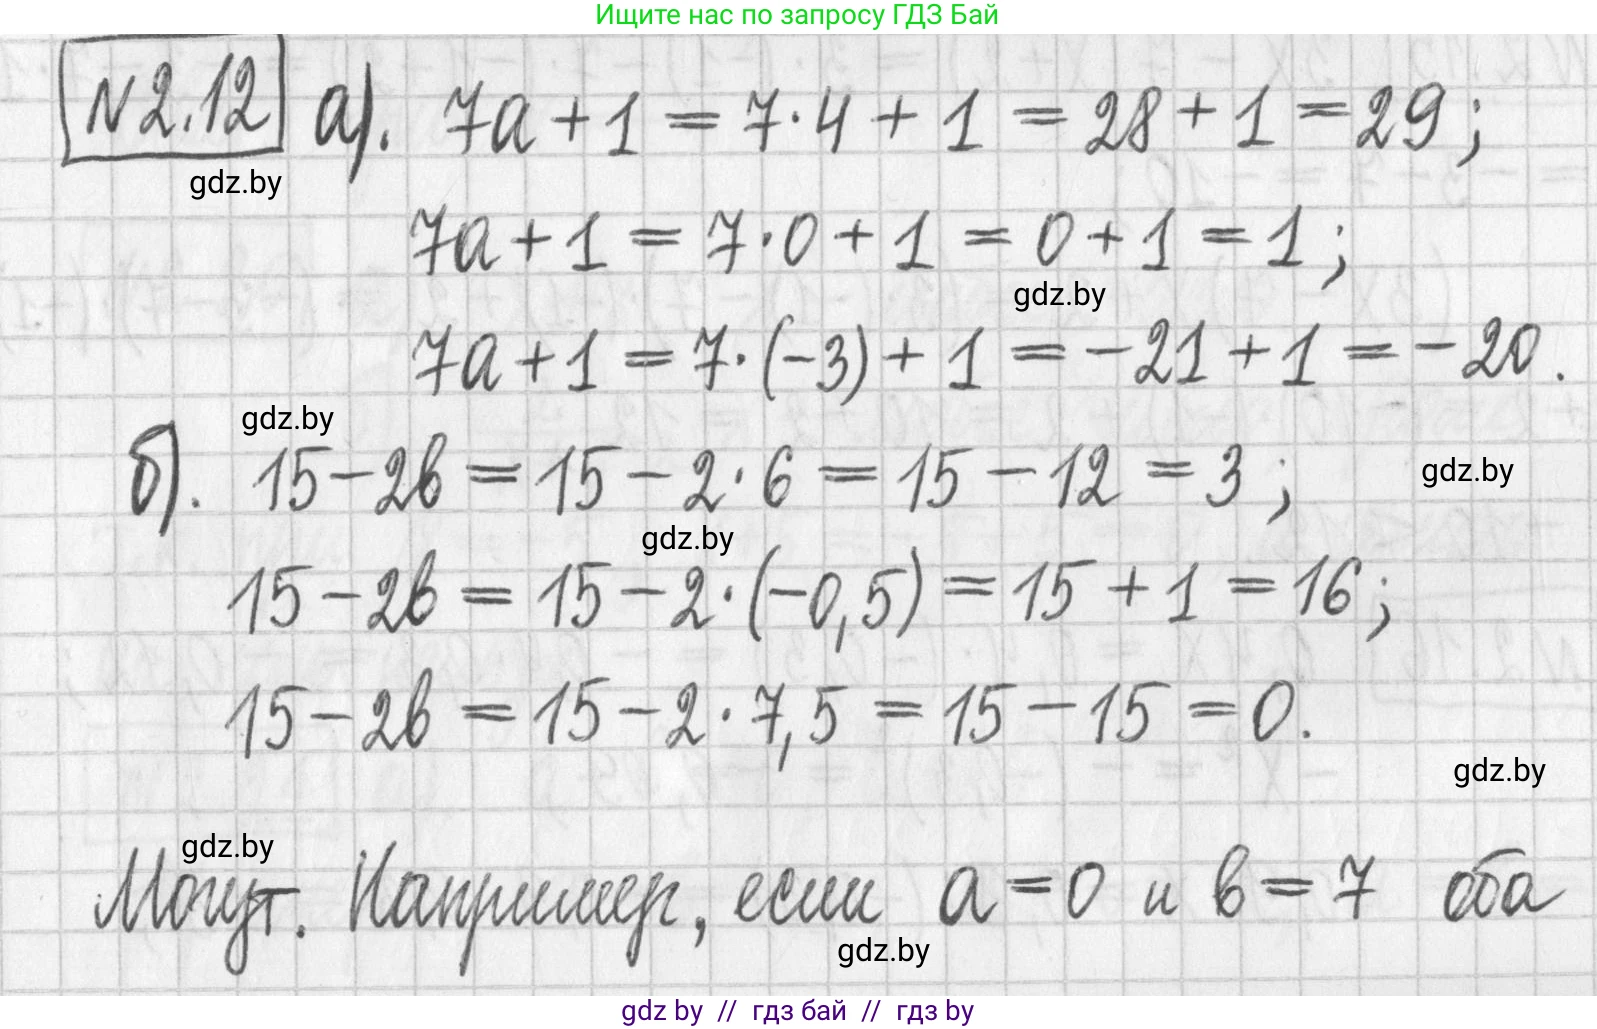 Ищите нас по запросу ГДЗ Бай
N2.12 а). 7a+1 = 7·4 + 1 = 28 + 1 = 29;
gdz.by
7a+1 = 7·0 + 1 = 0+1 = 1;
gdz.by
7a+1 = 7·(-3) + 1 = -21 + 1 = -20.
gdz.by
б). 15-2в = 15-2·6 = 15-12 = 3;
gdz.by
gdz.by
15-2в = 15-2·(-0,5) = 15+1 = 16;
15-2в = 15-2·7,5 = 15-15 = 0.
gdz.by
gdz.by
Могут. Например, если a=0 и в=7 оба
gdz.by
gdz by // гдз бай // гдз by